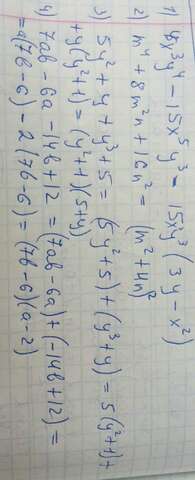 1) 45x³y⁴ - 15x⁵y³ = 15x³y³(3y - x²)
2) m⁴ + 8m²n + 16n² = (m² + 4n)²
3) 5y² + y + y³ + 5 = (5y² + 5) + (y³ + y) = 5(y² + 1) +
+ y(y² + 1) = (y² + 1)(5 + y)
4) 7ab - 6a - 14b + 12 = (7ab - 6a) + (-14b + 12) =
= a(7b - 6) - 2(7b - 6) = (7b - 6)(a - 2)